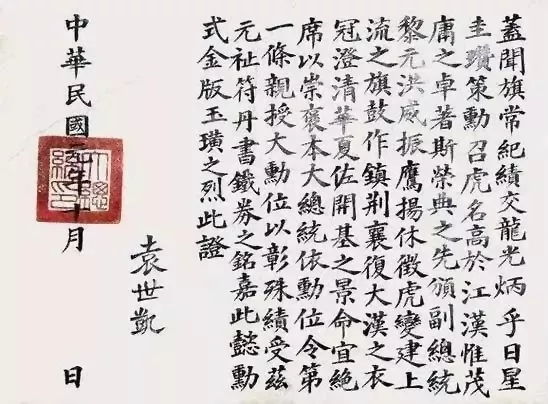 蓋聞旗常紀績交龍光炳乎日星
圭瓚策勳召虎名高於江漢惟茂
庸之卓著斯榮典之先頒副總統
黎元洪威振鷹揚休徵虎變建上
流之旗鼓作鎮荆襄復大漢之衣
冠澄清華夏佐開基之景命宜絕
席以崇褒本大總統依勳位令第
一條親授大勳位以彰殊績受茲
元祉符丹書鐵券之銘嘉此懿勳
式金版玉璜之烈此證
袁世凱
中華民國二年十月 日
大總統印